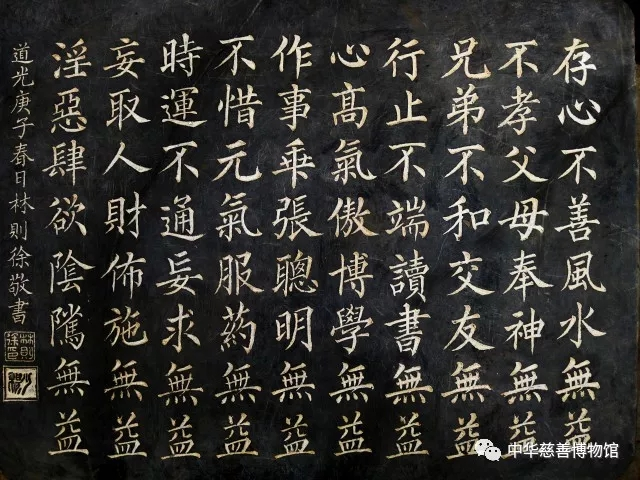 存心不善風水無益
不孝父母奉神無益
兄弟不和交友無益
行止不端讀書無益
心高氣傲博學無益
作事乖張聰明無益
不惜元氣服藥無益
時運不通妄求無益
妄取人財佈施無益
淫惡肆欲陰騭無益
道光庚子春日林則徐敬書
林則徐印
中华慈善博物馆